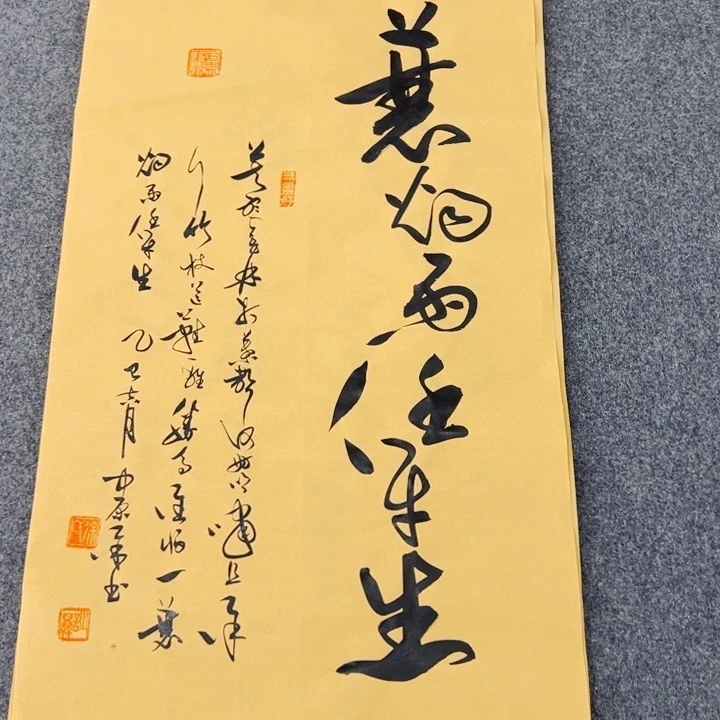 蓑烟雨任平生
莫听穿林打叶声何妨吟啸且徐
行竹杖芒鞋轻胜马谁怕一蓑
烟雨任平生 乙巳 月 中原 书